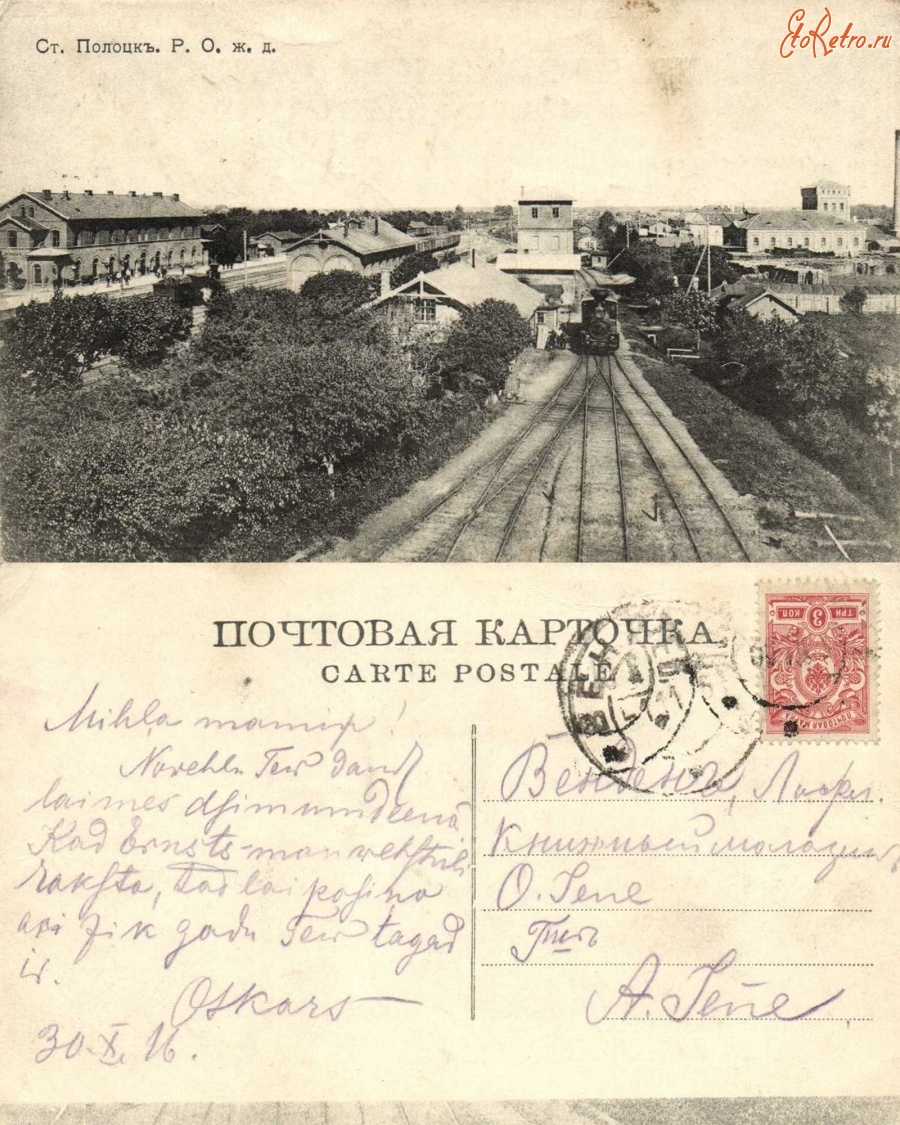 Ст. Полоцкъ. Р. О. ж. д.
EtoRetro.ru
ПОЧТОВАЯ КАРТОЧКА
CARTE POSTALE
ТРИ 3 КОП
ПОЧТОВАЯ МАРКА
ВЕН
Mihļa mamiņ!
Novehlu Tew daudz
laimes dsimumdeenā
Kad Ernsts man wehstuli
raksta, tad lai posino
zik gadu Tew tagad
ir.
Oskars
30.X.16.
Венденъ, Лифл.
Книжный магазинъ
О. Jепе
А. Jепе